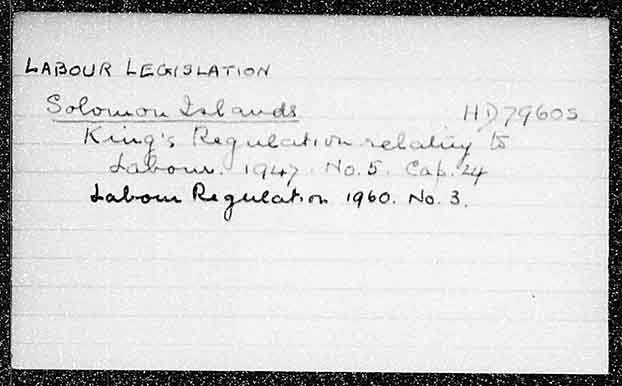 LABOUR LEGISLATION
Solomon Islands HD7960S
King's Regulation relating to
Labour. 1947. No. 5. Cap. 24
Labour Regulation 1960. No. 3.